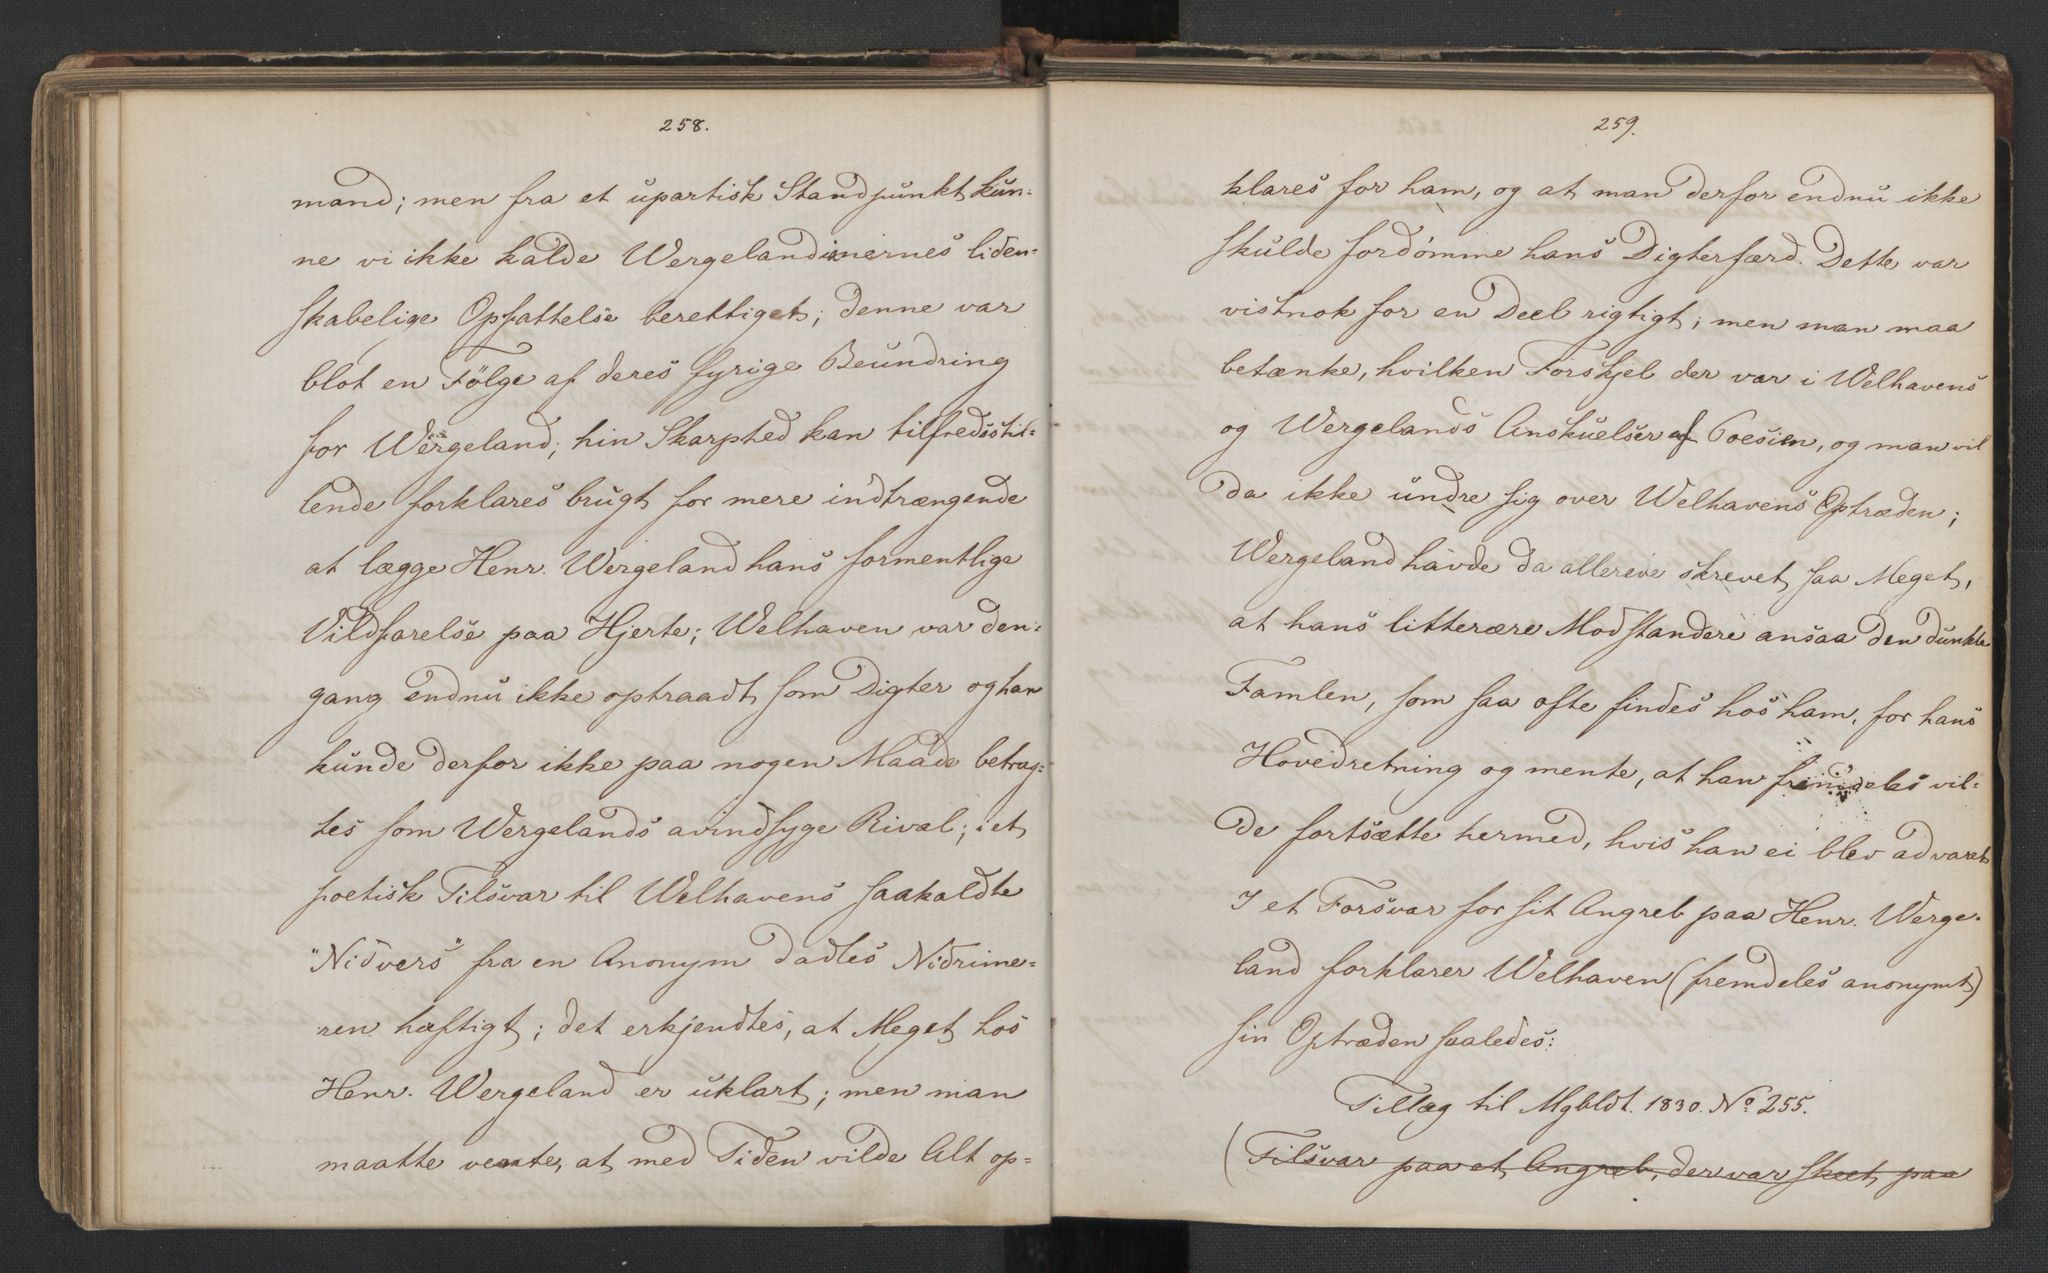 258.
mand; men fra et upartisk Standpunkt kun-
ne vi ikke kalde Wergelandinernes liden-
skabelige Opfattelse berettiget; denne var
blot en Følge af deres fyrige Beundring
for Wergeland; hin Skarphed kan tilfredsstil-
lende forklares brugt for mere indtrængende
at lægge Henr. Wergeland hans formentlige
Vildfarelse paa Hjerte; Welhaven var den-
gang endnu ikke optraadt som Digter og han
kunde derfor ikke paa nogen Maade betrag-
tes som Wergelands avindsyge Rival; i et
poetisk Tilsvar til Welhavens saakaldte
"Nidvers" fra en Anonym dadles Nidrime-
ren hæftigt; det erkjendtes, at Meget hos
Henr. Wergeland er uklart; men man
maatte vente, at med Tiden vilde Alt op-
259.
klares for ham, og at man derfor endnu ikke
skulde fordømme hans Digterfærd. Dette var
vistnok for en Deel rigtigt; men man maa
betænke, hvilken Forskjel der var i Welhavens
og Wergelands Anskuelser af Poesien, og man vil
da ikke undre sig over Welhavens Optræden;
Wergeland havde da allerede skrevet saa Meget,
at hans litterære Modstandere ansaa den dunkle
Famlen, som saa ofte findes hos ham, for hans
Hovedretning og mente, at han fremdeles vil-
de fortsætte hermed, hvis han ei blev advaret
I et Forsvar for sit Angreb paa Henr. Werge-
land forklarer Welhaven (fremdeles anonymt)
sin Optræden saaledes:
Tillæg til Mgbldt. 1830. No 255.
(Tilsvar paa et Angreb, der var skeet paa